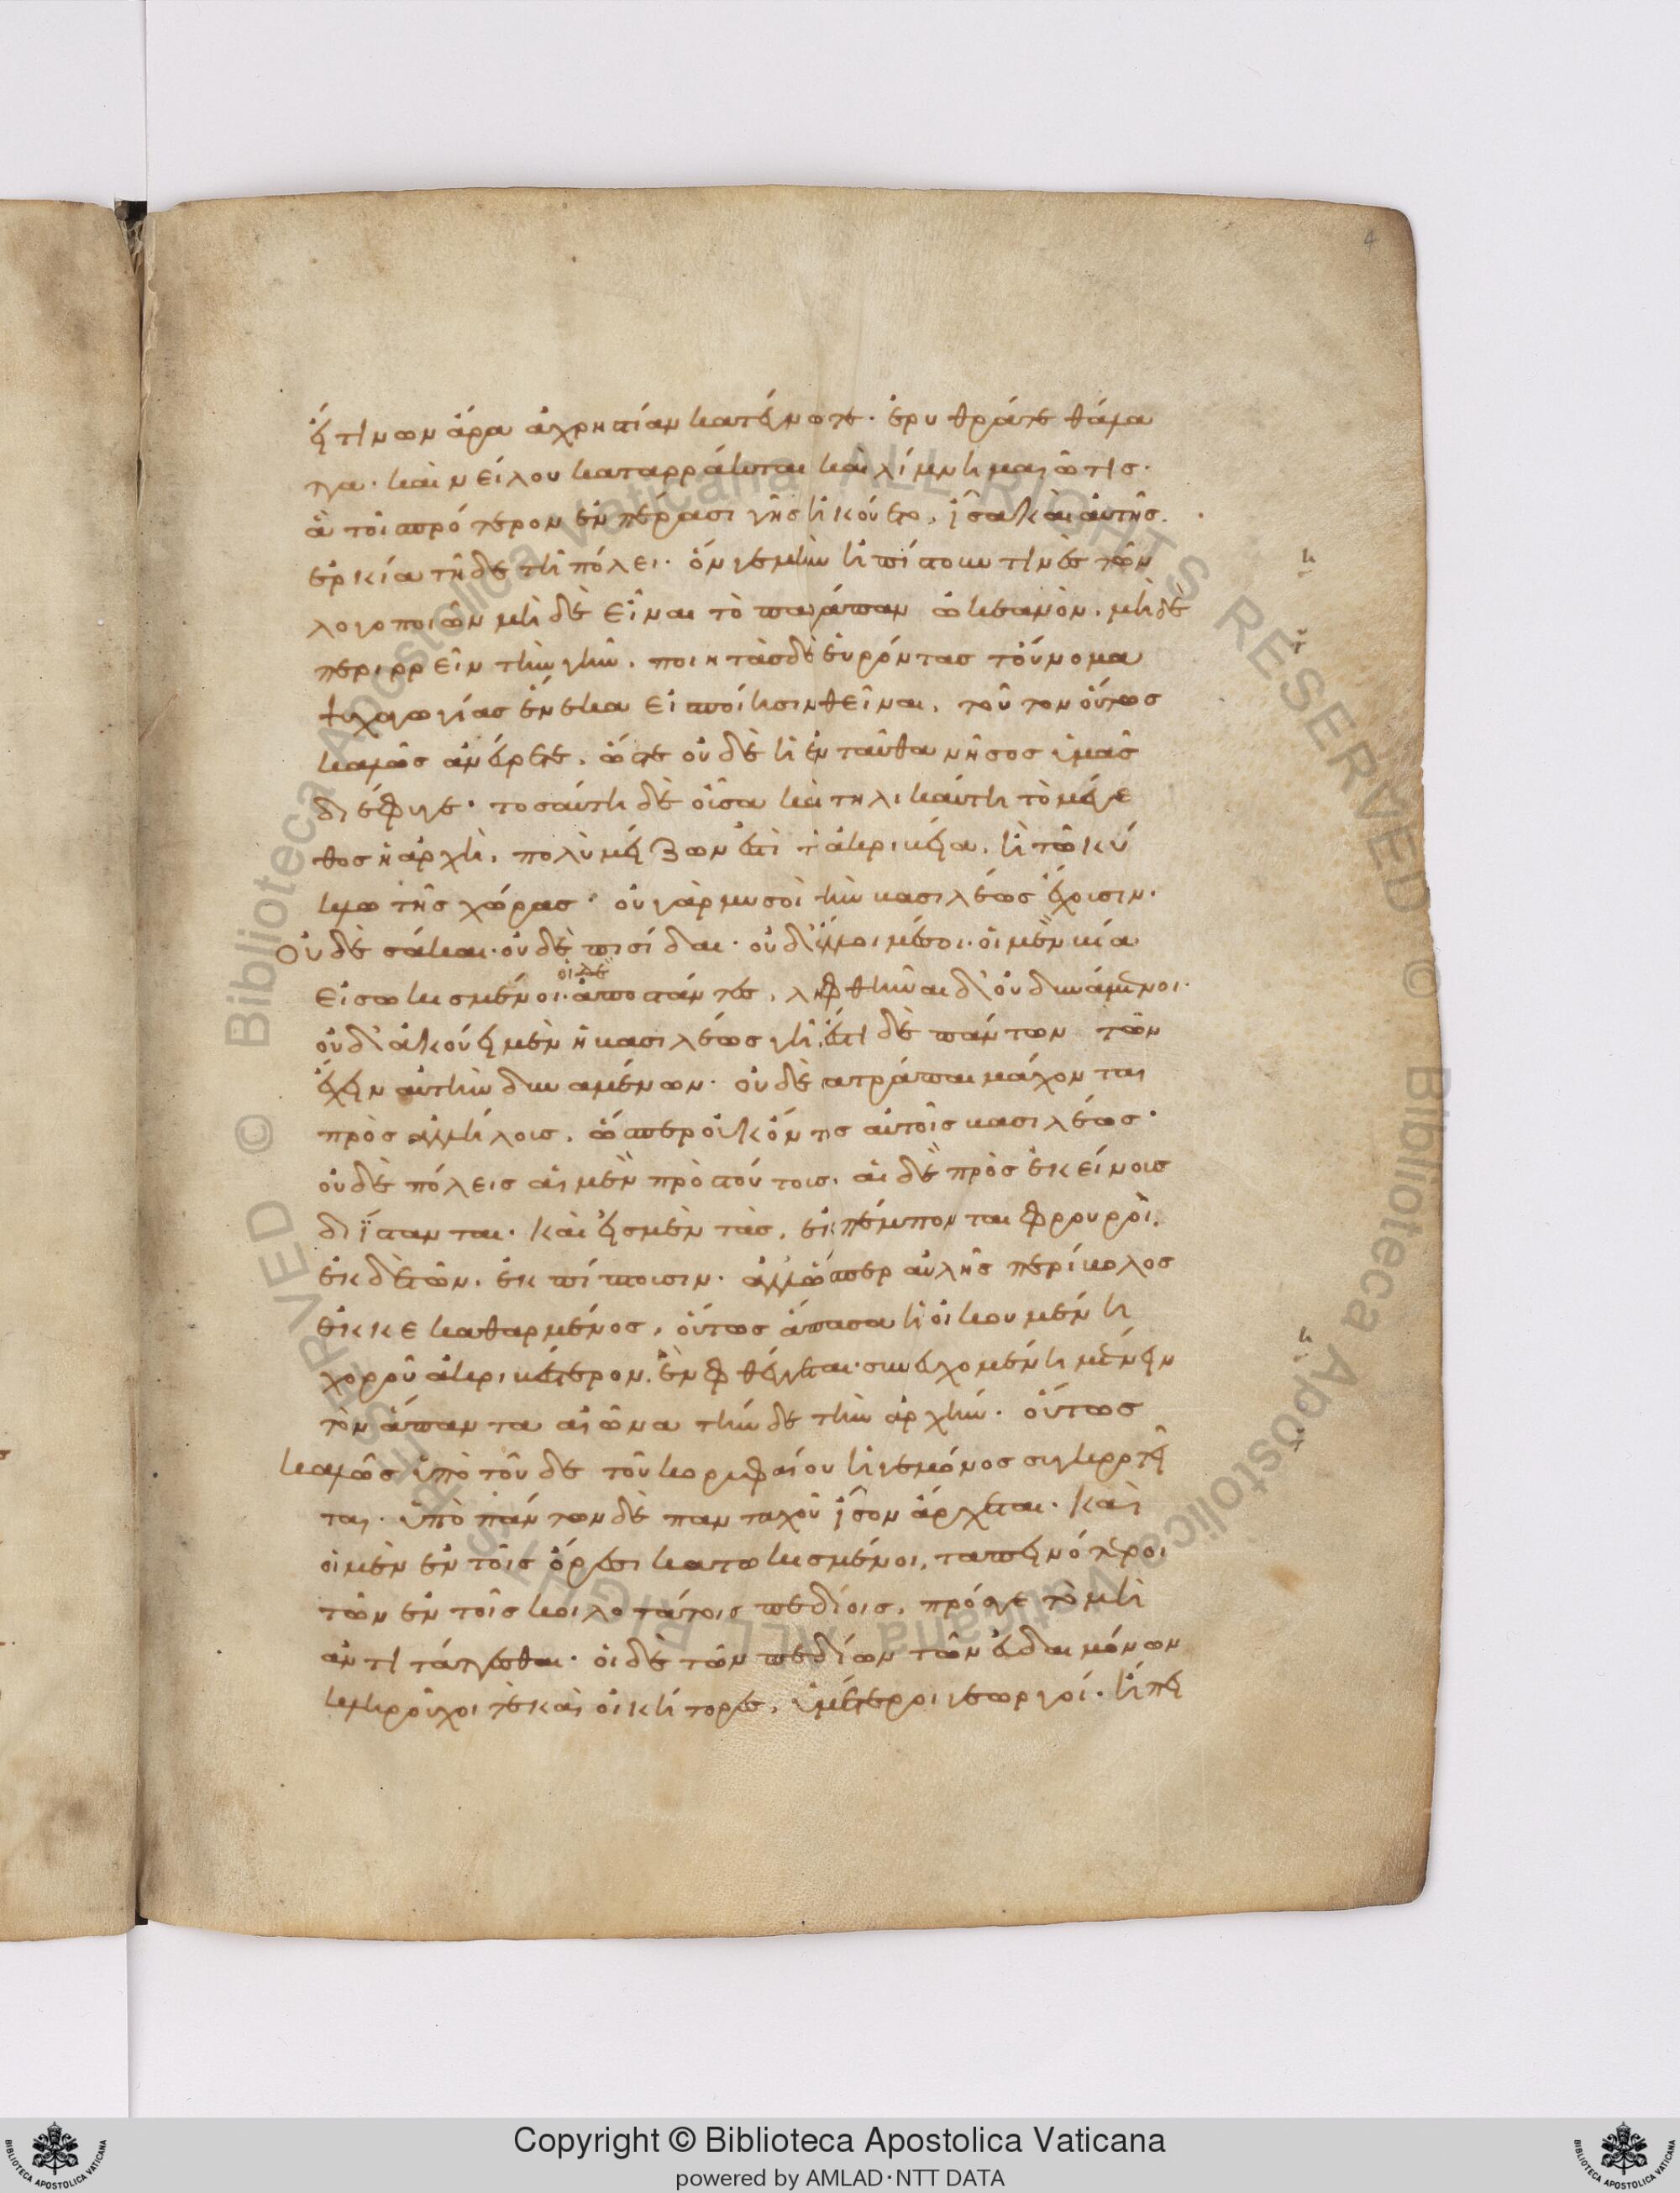 4
ἢ τίνων ἄρα ἀχρηστίαν κατέγνωτε. ἐρυθρᾶς τε θάλατ
τα. καὶ νείλου καταρράκται καὶ λίμνη μαιῶτις.
ἃ τοῖς πρότερον ἐν πέρασι γῆς ἠκούετο, ἴσα καὶ αὐλῆς
ἑρκία τῆδε τῆ πόλει. ὃν γε μὴν ἠπίστουν τινὲς τῶν
λογοποιῶν μὴ δὲ εἶναι τὸ παράπαν ὠκεανὸν. μὴ δὲ
περιρρεῖν τὴν γῆν. ποιητὰς δὲ εὑρόντας τοὔνομα
ψυχαγωγίας ἕνεκα εἰς ποίησιν θεῖναι. τοῦτον οὕτως
καλῶς ἀνεύρετε. ὥστε οὐδὲ ἡ ἐνταῦθα νῆσος ὑμᾶς
διέφυγε. τοσαύτη δὲ οὖσα καὶ τηλικαύτη τὸ μέγε
θος ἡ ἀρχὴ. πολὺ μείζων ἐστὶ τἀκριβεία. ἢ τῶ κύ
κλω τῆς χώρας. οὐ γὰρ μυσοὶ τὴν βασιλέως ἔχουσιν.
οὐδὲ σάκαι. οὐδὲ πισίδαι. οὐδ' ἄλλοι μέσοι. οἱ μὲν βία
οἱ δὲ
εἰσωκισμένοι. ἀποστάντες. ληφθῆναι δ' οὐ δυνάμενοι.
οὐδ' ἀκούει μὲν ἡ βασιλέως γῆ. ἔστι δὲ πάντων τῶν
ἔχειν αὐτὴν δυναμένων. οὐδὲ σατράπαι μάχονται
πρὸς ἀλλήλους. ὥσπερ οὐκ ὄντος αὐτοῖς βασιλέως.
οὐδὲ πόλεις αἱ μὲν πρὸς τούτοις. αἱ δὲ πρὸς ἐκείνοις
διΐστανται. καὶ εἰς μὲν τὰς, ἐκπέμπονται φρουροὶ.
ἐκ δὲ τῶν. ἐκπίπτουσιν. ἀλλ' ὥσπερ αὐλῆς περίβολος
ἐκκεκαθαρμένος, οὕτως ἅπασα ἡ οἰκουμένη
χοροῦ ἀκριβέστερον. ἓν φθέγγεται. συνευχομένη μένειν
τὸν ἅπαντα αἰῶνα τήνδε τὴν ἀρχήν. οὕτως
καλῶς ὑπὸ τοῦδε τοῦ κορυφαίου ἡγεμόνος συγκροτεῖ
ται. ὑπὸ πάντων δὲ πανταχοῦ ἴσον ἄρχεται. καὶ
οἱ μὲν ἐν τοῖς ὄρεσι κατωκισμένοι, ταπεινότεροι
τῶν ἐν τοῖς κοιλοτάτοις πεδίοις. πρός γε τὸ μὴ
ἀντιτάττεσθαι. οἱ δὲ τῶν πεδίων τῶν εὐδαιμόνων
κληροῦχοί τε καὶ οἰκήτορες, ὑμέτεροι γεωργοί. ἤπει
Copyright © Biblioteca Apostolica Vaticana
powered by AMLAD·NTT DATA